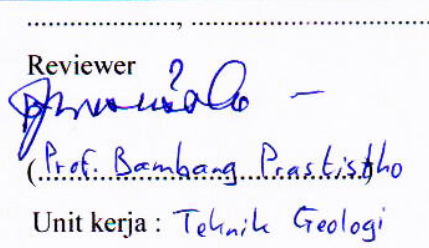 ...................., ........................................
Reviewer
(Prof. Bambang Prastistho)
Unit kerja : Teknik Geologi